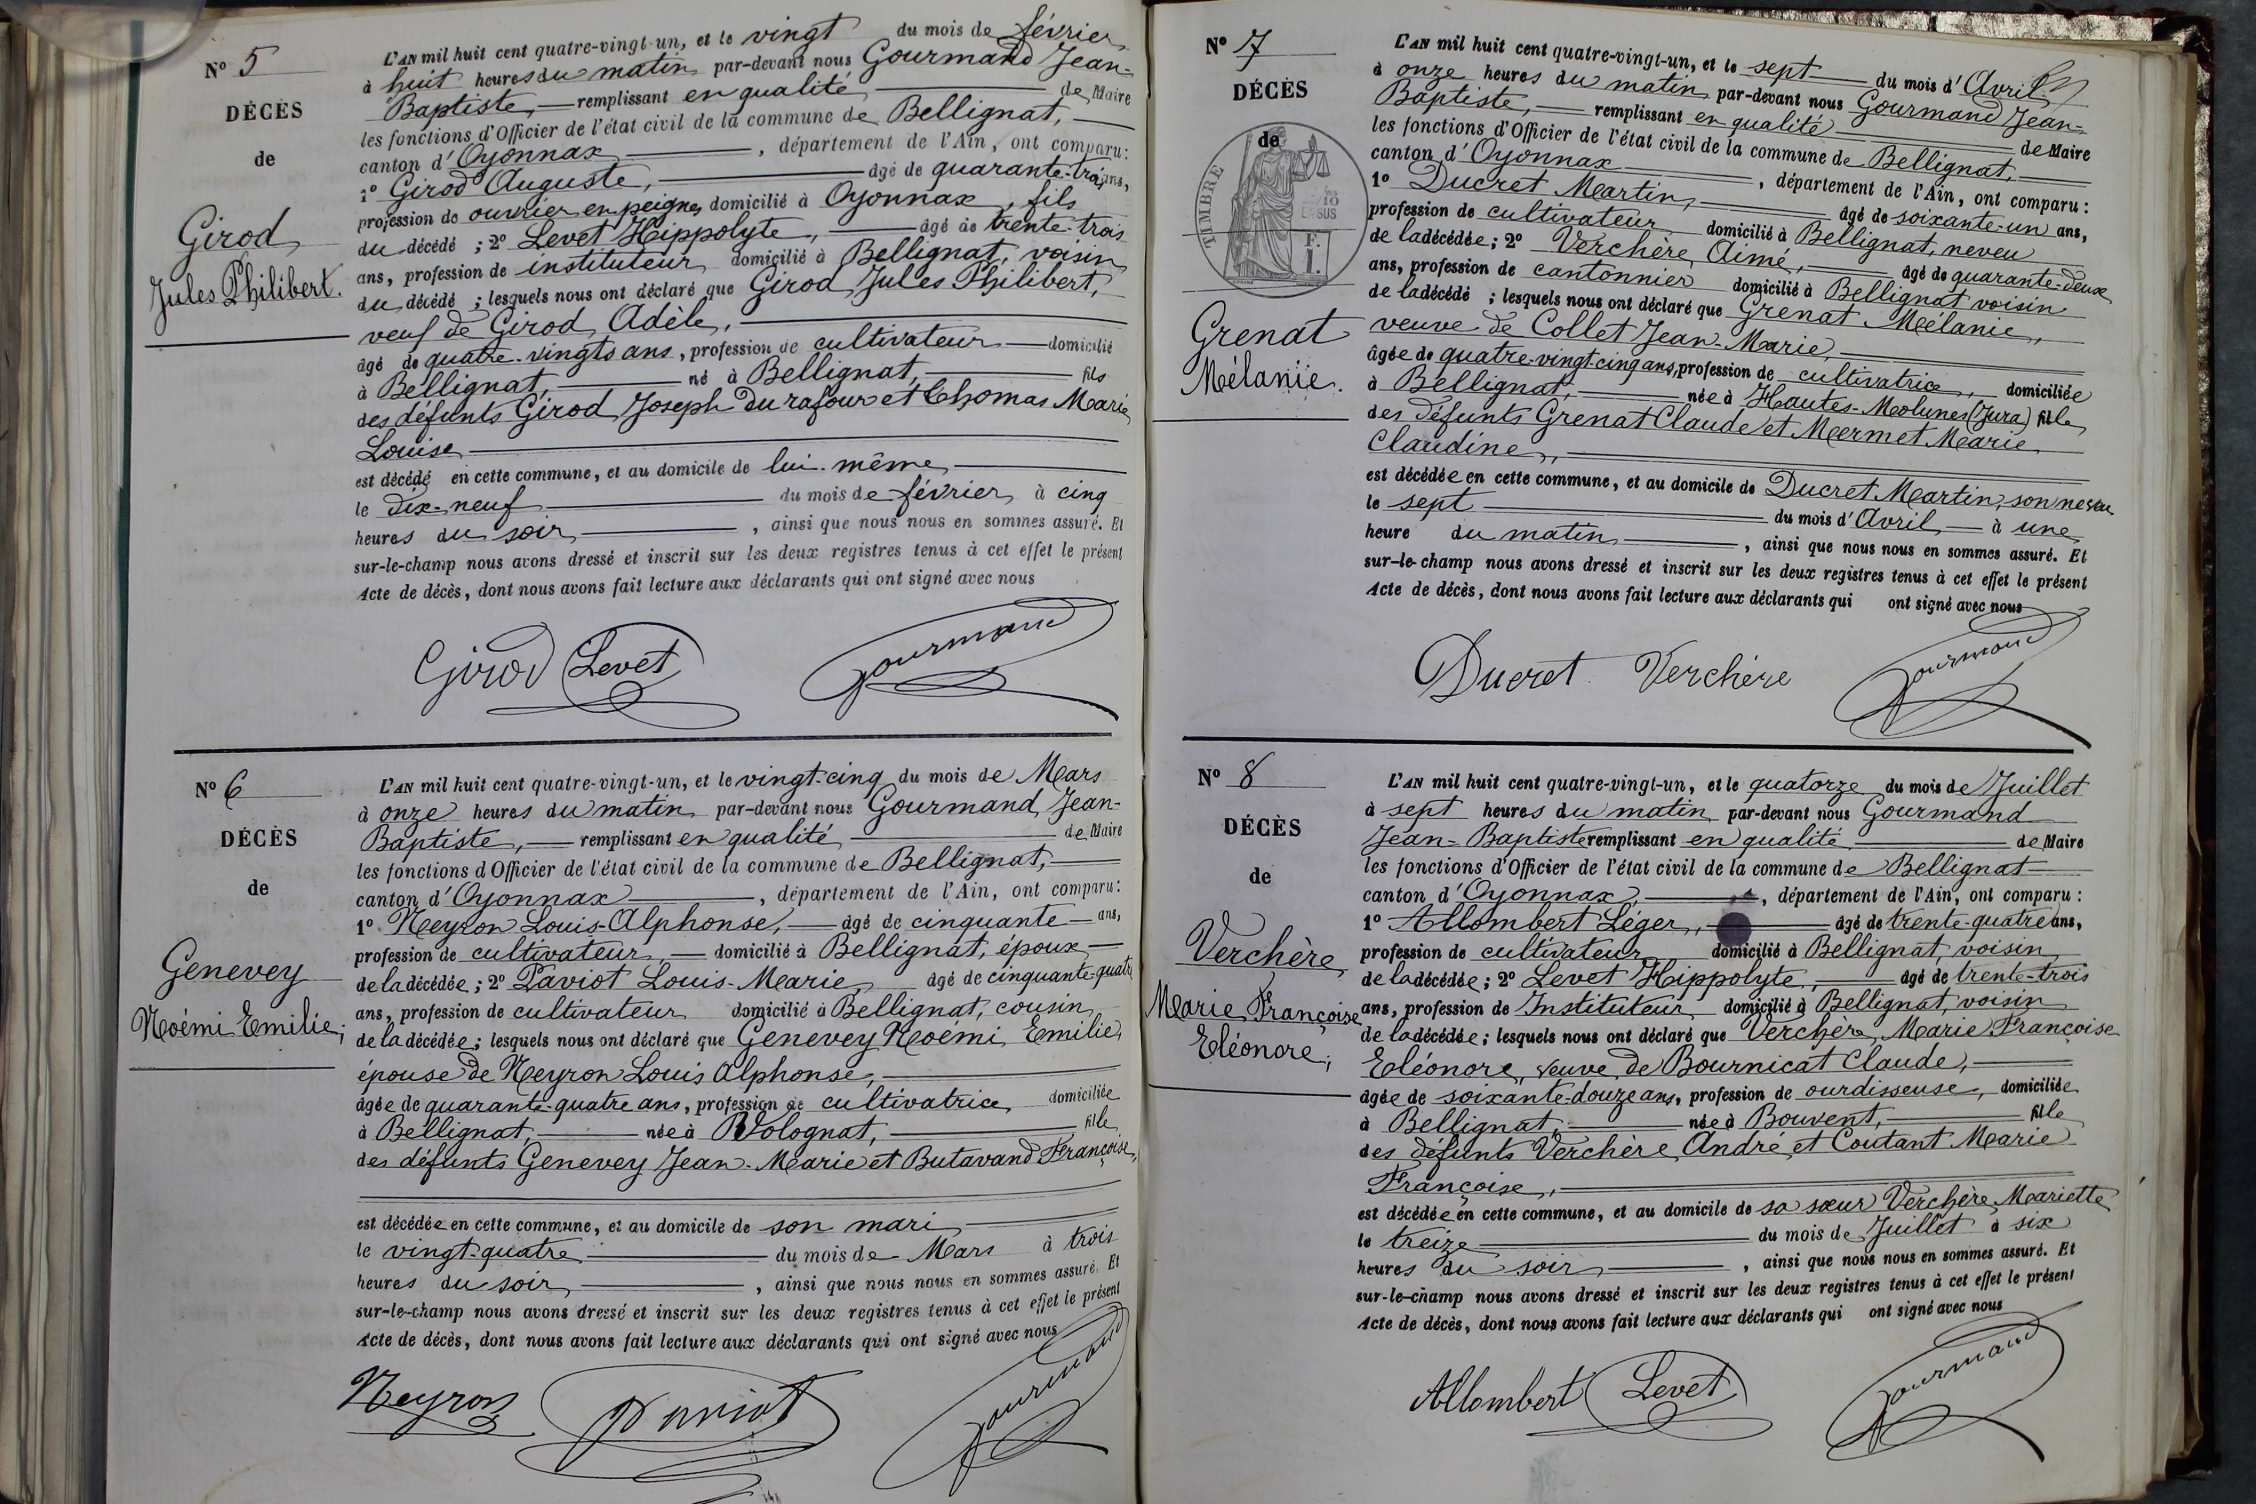 N° 5
DÉCÈS
de
Girod
Jules Philibert.
L'AN mil huit cent quatre-vingt-un, et le vingt du mois de février
à huit heures du matin par-devant nous Gourmand Jean-
Baptiste, remplissant en qualité de Maire
les fonctions d'Officier de l'état civil de la commune de Bellignat,
canton d'Oyonnax, département de l'Ain, ont comparu:
1° Girod Auguste, âgé de quarante-trois ans,
profession de ouvrier en peignes domicilié à Oyonnax, fils
du décédé ; 2° Levet Hippolyte, âgé de trente-trois
ans, profession de instituteur domicilié à Bellignat, voisin
du décédé ; lesquels nous ont déclaré que Girod Jules Philibert,
veuf de Girod Adèle,
âgé de quatre-vingts ans, profession de cultivateur domicilié
à Bellignat, né à Bellignat, fils
des défunts Girod Joseph Durafour et Thomas Marie
Louise
est décédé en cette commune, et au domicile de lui-même,
le dix-neuf du mois de février à cinq
heures du soir, ainsi que nous nous en sommes assuré. Et
sur-le-champ nous avons dressé et inscrit sur les deux registres tenus à cet effet le présent
Acte de décès, dont nous avons fait lecture aux déclarants qui ont signé avec nous
Girod Levet Gourmand
N° 6
DÉCÈS
de
Genevey
Noémi Emilie;
L'AN mil huit cent quatre-vingt-un, et le vingt-cinq du mois de Mars
à onze heures du matin par-devant nous Gourmand Jean-
Baptiste, remplissant en qualité de Maire
les fonctions d'Officier de l'état civil de la commune de Bellignat,
canton d'Oyonnax, département de l'Ain, ont comparu:
1° Neyron Louis-Alphonse, âgé de cinquante ans,
profession de cultivateur, domicilié à Bellignat, époux
de la décédée; 2° Paviot Louis-Marie âgé de cinquante-quatre
ans, profession de cultivateur domicilié à Bellignat, cousin
de la décédée; lesquels nous ont déclaré que Genevey Noémi Emilie,
épouse de Neyron Louis Alphonse,
âgée de quarante-quatre ans, profession de cultivatrice domiciliée
à Bellignat, née à Volognat, fille
des défunts Genevey Jean-Marie et Butavand Françoise,
est décédée en cette commune, et au domicile de son mari
le vingt-quatre du mois de Mars à trois
heures du soir, ainsi que nous nous en sommes assuré. Et
sur-le-champ nous avons dressé et inscrit sur les deux registres tenus à cet effet le présent
Acte de décès, dont nous avons fait lecture aux déclarants qui ont signé avec nous
Neyron Paviot Gourmand
N° 7
DÉCÈS
de
TIMBRE
Grenat
Mélanie.
L'AN mil huit cent quatre-vingt-un, et le sept du mois d'Avril
à onze heures du matin par-devant nous Gourmand Jean-
Baptiste, remplissant en qualité de Maire
les fonctions d'Officier de l'état civil de la commune de Bellignat,
canton d'Oyonnax, département de l'Ain, ont comparu:
1° Ducret Martin, âgé de soixante-un ans,
profession de cultivateur domicilié à Bellignat, neveu
de la décédée; 2° Verchère Aimé, âgé de quarante-deux
ans, profession de cantonnier domicilié à Bellignat voisin
de la décédé ; lesquels nous ont déclaré que Grenat Mélanie,
veuve de Collet Jean-Marie,
âgée de quatre-vingt-cinq ans, profession de cultivatrice, domiciliée
à Bellignat, née à Hautes-Molunes (Jura) fille
des défunts Grenat Claude et Mermet Marie
Claudine,
est décédée en cette commune, et au domicile de Ducret Martin, son neveu
le sept du mois d'Avril à une
heure du matin, ainsi que nous nous en sommes assuré. Et
sur-le-champ nous avons dressé et inscrit sur les deux registres tenus à cet effet le présent
Acte de décès, dont nous avons fait lecture aux déclarants qui ont signé avec nous
Ducret Verchère Gourmand
N° 8
DÉCÈS
de
Verchère
Marie Françoise
Eléonore;
L'AN mil huit cent quatre-vingt-un, et le quatorze du mois de Juillet
à sept heures du matin par-devant nous Gourmand
Jean-Baptiste remplissant en qualité de Maire
les fonctions d'Officier de l'état civil de la commune de Bellignat
canton d'Oyonnax, département de l'Ain, ont comparu:
1° Allombert Léger, âgé de trente-quatre ans,
profession de cultivateur domicilié à Bellignat, voisin
de la décédée; 2° Levet Hippolyte, âgé de trente-trois
ans, profession de Instituteur domicilié à Bellignat, voisin
de la décédée; lesquels nous ont déclaré que Verchère Marie Françoise
Eléonore, veuve de Bournicat Claude,
âgée de soixante-douze ans, profession de ourdisseuse, domiciliée
à Bellignat, née à Bouvent, fille
des défunts Verchère André et Coutant Marie
Françoise,
est décédée en cette commune, et au domicile de sa sœur Verchère Mariette
le treize du mois de Juillet à six
heures du soir, ainsi que nous nous en sommes assuré. Et
sur-le-champ nous avons dressé et inscrit sur les deux registres tenus à cet effet le présent
Acte de décès, dont nous avons fait lecture aux déclarants qui ont signé avec nous
Allombert Levet Gourmand